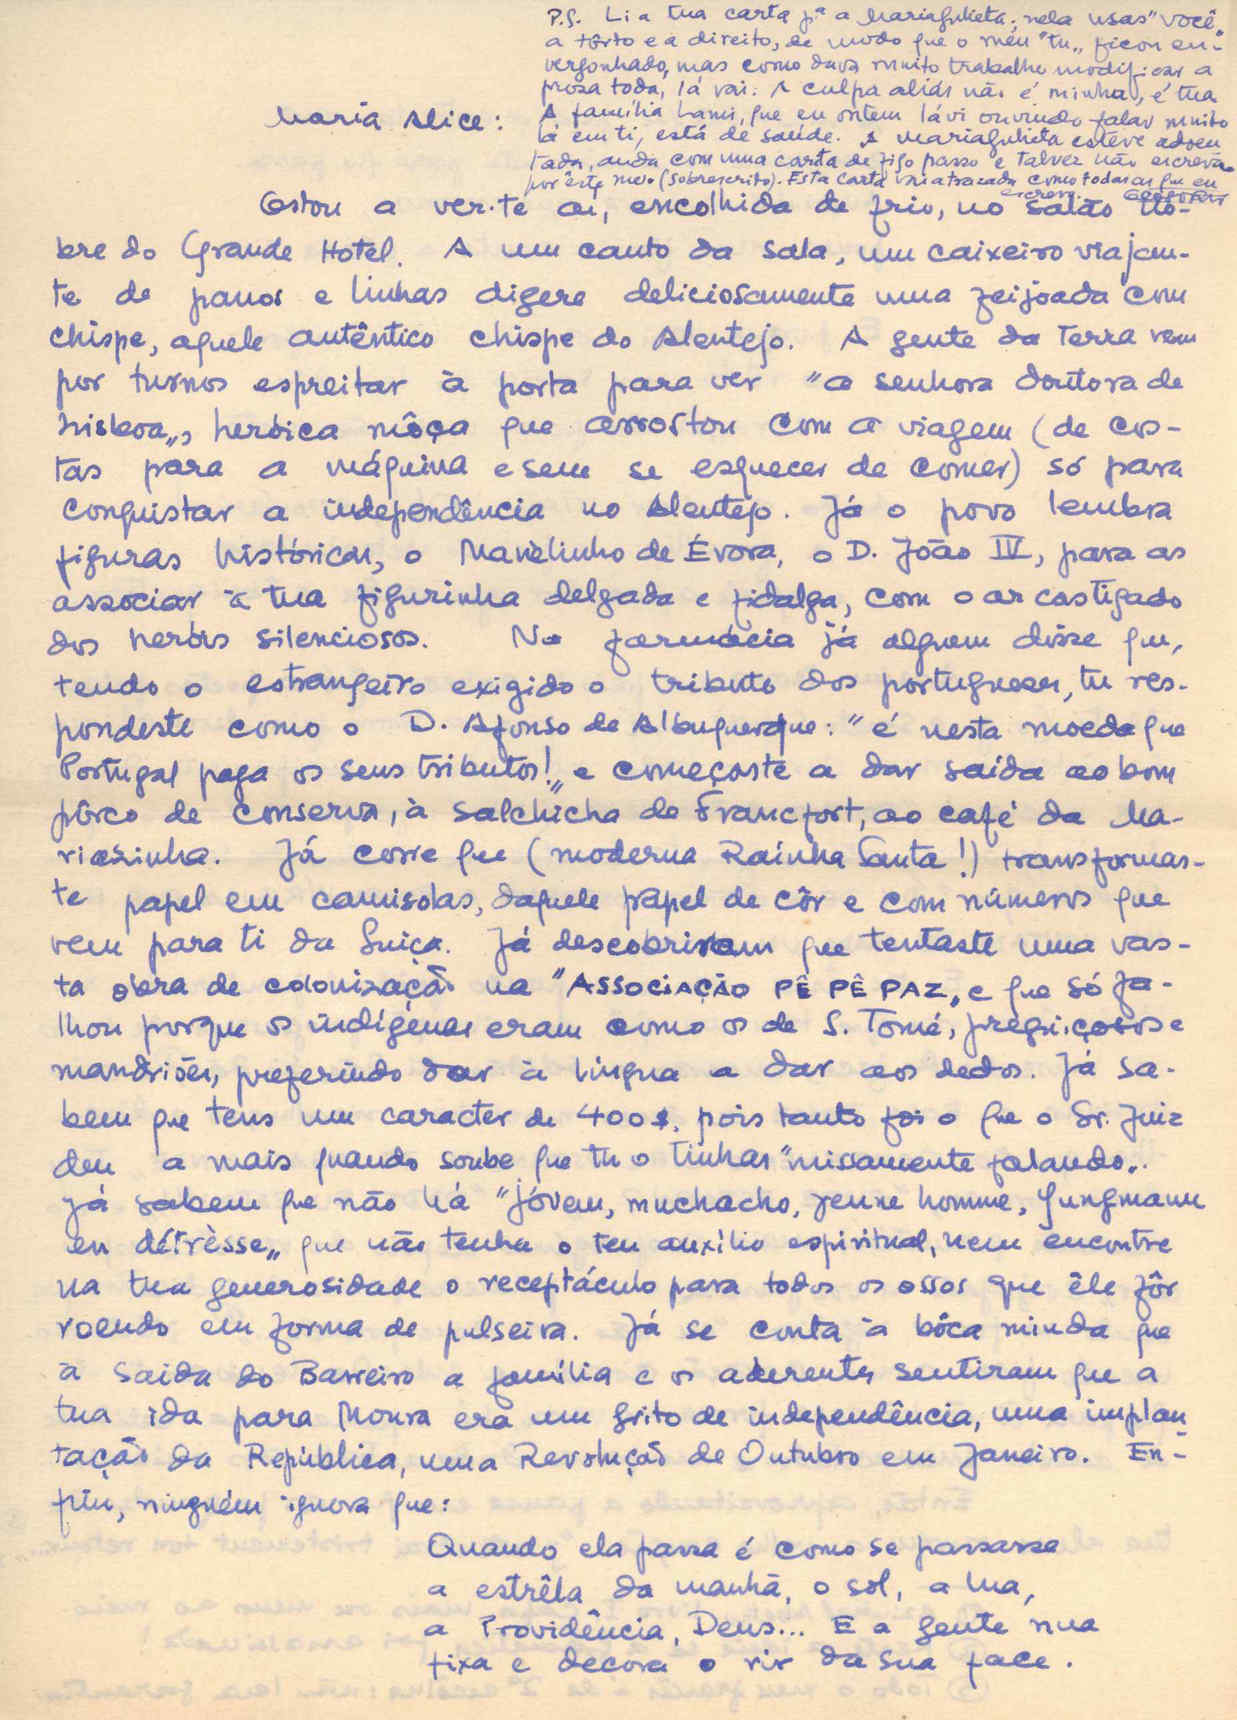 P.S. Li a tua carta pª a Mariajulieta; nela usas "você„
a tôrto e a direito, de modo que o meu "tu„ ficou en-
vergonhado, mas como dava muito trabalho modificar a
prosa toda, lá vai. A culpa aliás não é minha, é tua
A família Lami, que eu ontem lá vi ouvindo falar muito
lá em ti, está de saúde. A Mariajulieta esteve adoen
tada, anda com uma carta de figo passo e talvez não escreva
por êste meio (sobrescrito). Esta carta vai atrazada como todas as que eu
escrevo
Maria Alice:
Estou a ver-te aí, encolhida de frio, no salão no-
bre do Grande Hotel. A um canto da sala, um caixeiro viajan-
te de panos e linhas digere deliciosamente uma feijoada com
chispe, aquele autêntico chispe do Alentejo. A gente da Terra vem
por turnos espreitar à porta para ver "a senhora doutora de
Lisboa„, heróica môça que arrostou com a viagem (de cos-
tas para a máquina e sem se esquecer de comer) só para
conquistar a independência no Alentejo. Já o povo lembra
figuras históricas, o Manelinho de Évora, o D. João IV, para as
associar à tua figurinha delgada e fidalga, com o ar castigado
dos heróis silenciosos. Na farmácia já alguem disse que,
tendo o estrangeiro exigido o tributo dos portugueses, tu res-
pondeste como o D. Afonso de Albuquerque: "é nesta moeda que
Portugal paga os seus tributos!„ e começaste a dar saída ao bom
pôrco de conserva, à salchicha de Francfort, ao café da Ma-
riazinha. Já corre que (moderna Raínha Santa!) transformas-
te papel em camisolas, daquele papel de côr e com números que
vem para ti da Suiça. Já descobriram que tentaste uma vas-
ta obra de colonização na "ASSOCIAÇÃO PÊ PÊ PAZ„ e que só fa-
lhou porque os indígenas eram como os de S. Tomé, preguiçosos e
mandriões, preferindo dar à língua a dar aos dedos. Já sa-
bem que tens um caracter de 400$, pois tanto foi o que o Sr. Juiz
deu a mais quando soube que tu o tinhas "missamente falando„.
Já sabem que não há "jóvem, muchacho, jeune homme, Jungmann
en détrèsse„ que não tenha o teu auxílio espiritual, nem encontre
na tua generosidade o receptáculo para todos os ossos que êle fôr
roendo em forma de pulseira. Já se conta à bôca miuda que
à saida do Barreiro a família e os aderentes sentiram que a
tua ida para Moura era um grito de independência, uma implan
tação da República, uma Revolução de Outubro em Janeiro. En-
fim, ninguém ignora que:
Quando ela passa é como se passasse
a estrêla da manhã, o sol, a lua,
a Providência, Deus... E a gente nua
fixa e decora o rir da sua face.